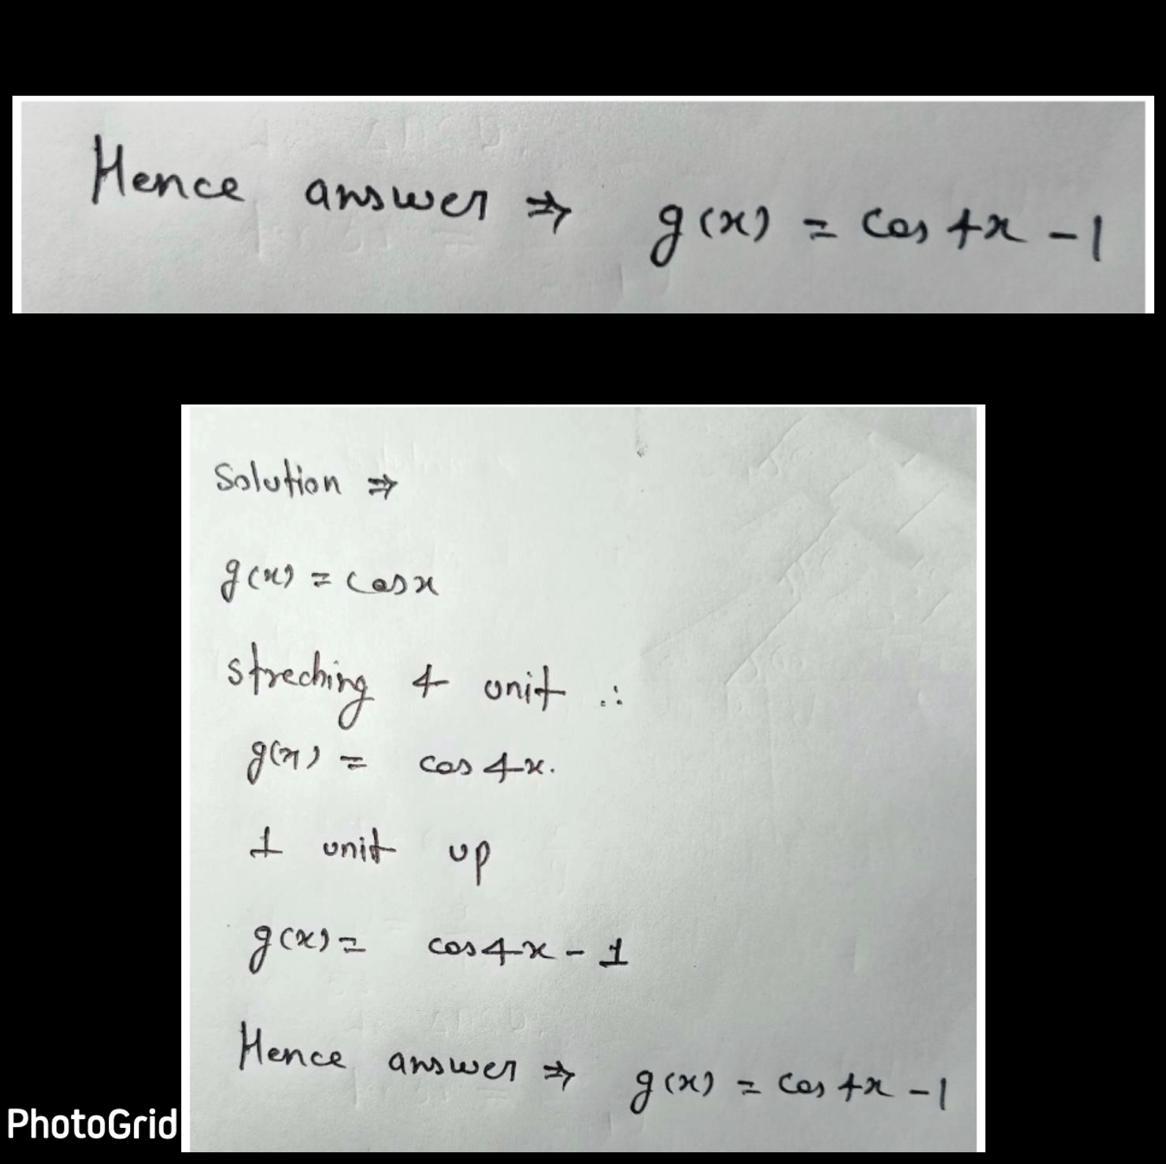 Hence answer ⇒ g(x) = cos 4x - 1
Solution ⇒
g(x) = cosx
streching 4 unit ∴
g(x) = cos 4x.
1 unit up
g(x) = cos4x - 1
Hence answer ⇒ g(x) = cos 4x - 1
PhotoGrid